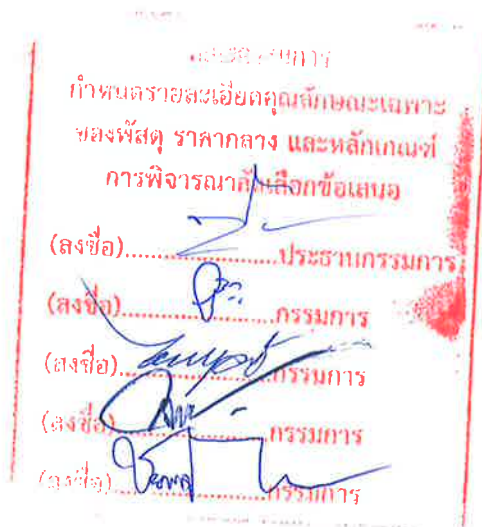 กำหนดรายละเอียดคุณลักษณะเฉพาะ
ของพัสดุ ราคากลาง และหลักเกณฑ์
การพิจารณาคัดเลือกข้อเสนอ
(ลงชื่อ)....................ประธานกรรมการ
(ลงชื่อ)....................กรรมการ
(ลงชื่อ)....................กรรมการ
(ลงชื่อ)....................กรรมการ
(ลงชื่อ)....................กรรมการ